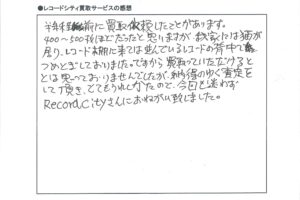 ●レコードシティ買取サービスの感想
半年程前に買取依頼したことがあります。
400〜500枚ほどだったと思いますが、我家には猫が
居り、レコード棚に来ては並んでいるレコードの背中で
つめとぎしておりました。ですから買取っていただけると
は思っておりませんでしたが、納得のゆく査定を
して頂き、とてもうれしかったので、今回も迷わず
RecordCityさんにおねがい致しました。